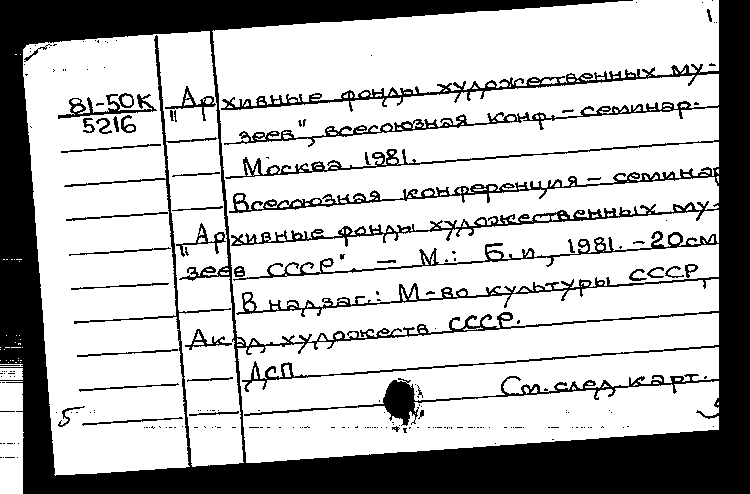 1
81-50К
5216
"Архивные фонды художественных му-
зеев", всесоюзная конф.-семинар.
Москва. 1981.
Всесоюзная конференция - семинар
"Архивные фонды художественных му-
зеев СССР". - М.: Б.и, 1981. - 20см
В надзаг.: М-во культуры СССР,
Акад. художеств СССР.
ДСП.
См. след. карт.
5